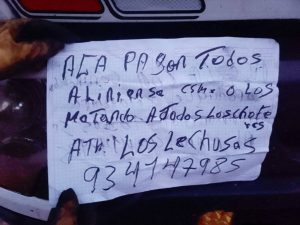 ACA PAGan TODOS
ALINIENSE CSM. O LOS
Matando A Todos Los chofe
res
ATT: LOS LeChusas
934147985